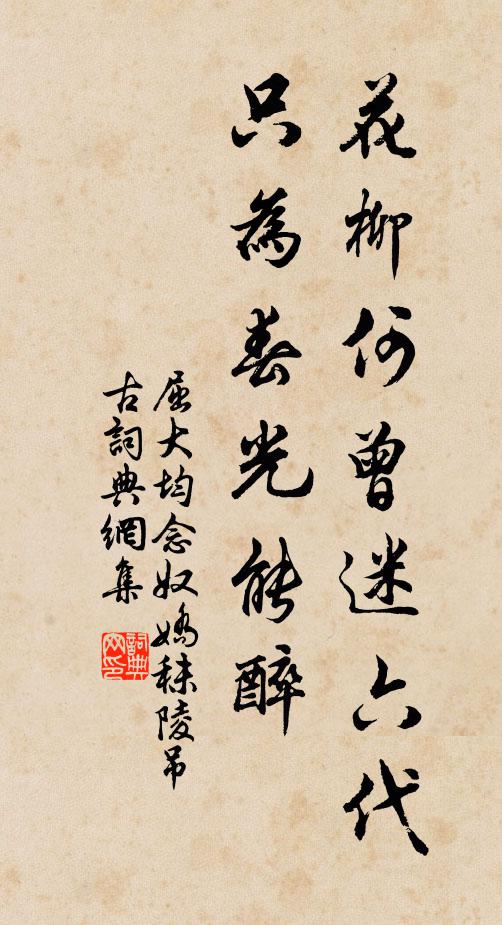 花柳何曾迷六代
只為春光能醉
屈大均念奴嬌秣陵吊
古詞典網集
詞典网印